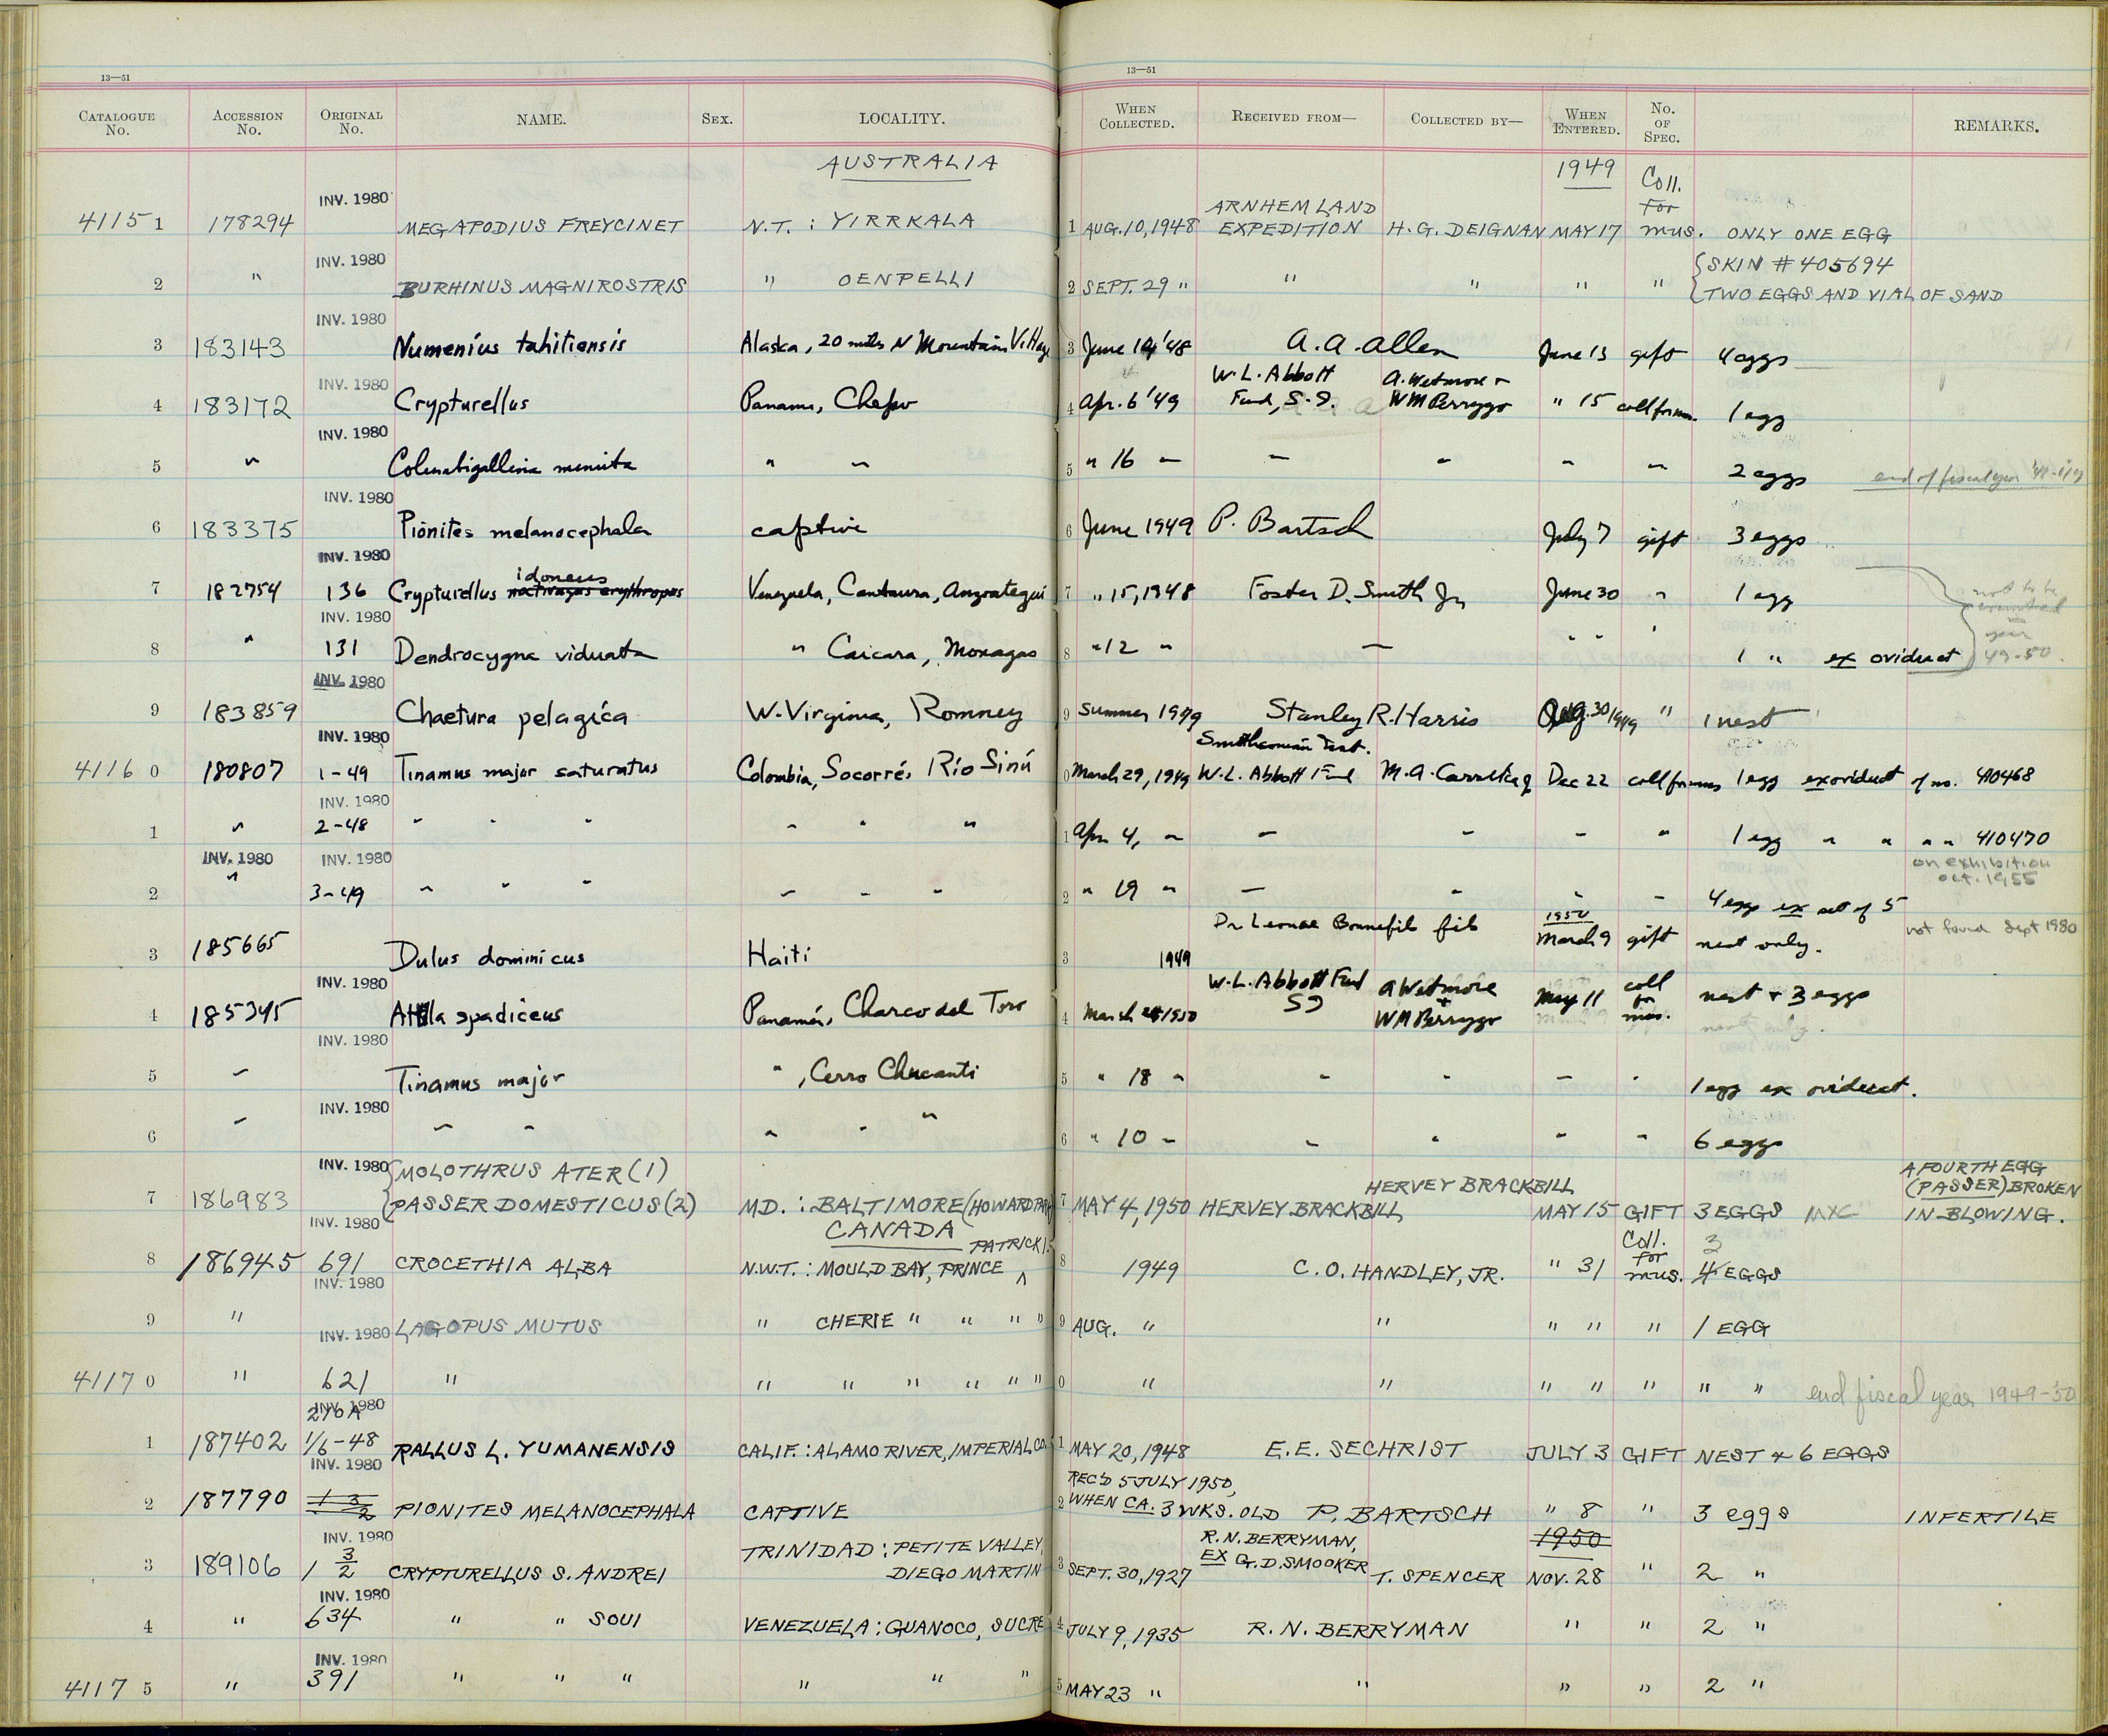 13—51
13—51
CATALOGUE No. ACCESSION No. ORIGINAL No. NAME. SEX. LOCALITY. WHEN COLLECTED. RECEIVED FROM— COLLECTED BY— WHEN ENTERED. No. OF SPEC. REMARKS.
AUSTRALIA 1949
INV. 1980 ARNHEM LAND Coll. for
4115 1 178294 MEGAPODIUS FREYCINET N.T. : YIRRKALA 1 AUG. 10, 1948 EXPEDITION H. G. DEIGNAN MAY 17 mus. ONLY ONE EGG
INV. 1980 {SKIN # 405694
2 " BURHINUS MAGNIROSTRIS " OENPELLI 2 SEPT. 29 " " " " " TWO EGGS AND VIAL OF SAND
INV. 1980
3 183143 Numenius tahitiensis Alaska, 20 miles N Mountain Village 3 June 14 '48 A. A. Allen June 13 gift 4 eggs
INV. 1980 W. L. Abbott A. Wetmore +
4 183172 Crypturellus Panama, Chepo 4 Apr. 6 '49 Fund, S. I. W M Perrygo " 15 coll for mus. 1 egg
INV. 1980
5 " Columbigallina minuta " " 5 " 16 " " " " " 2 eggs end of fiscal year '48-'49
INV. 1980
6 183375 Pionites melanocephala captive 6 June 1949 P. Bartsch July 7 gift 3 eggs
INV. 1980 idoneus
7 182754 136 Crypturellus noctivagus erythropus Venezuela, Cantaura, Anzoategui 7 " 15, 1948 Foster D. Smith Jr June 30 " 1 egg not to be counted
INV. 1980 year
8 " 131 Dendrocygna viduata " Caicara, Monagas 8 " 12 " " " " " 1 " ex oviduct 49-50.
INV. 1980
9 183859 Chaetura pelagica W. Virginia, Romney 9 Summer 1949 Stanley R. Harris Aug. 30 1949 " 1 nest
INV. 1980 Smithsonian Inst.
4116 0 180807 1-49 Tinamus major saturatus Colombia, Socorré, Río Sinú 0 March 29, 1949 W. L. Abbott Fund M. A. Carriker Jr Dec 22 coll for mus 1 egg ex oviduct of no. 410468
INV. 1980
1 " 2-48 " " " " " " 1 Apr 4, " " " " " 1 egg " " " " 410470
INV. 1980 INV. 1980 on exhibition oct. 1955
2 " 3-49 " " " " " " 2 " 19 " " " " " 4 eggs ex set of 5
Bonnefil fils 1950
3 185665 Dulus dominicus Haiti 3 1949 March 9 gift nest only. not found Sept 1980
INV. 1980 W. L. Abbott Fund A Wetmore coll
4 185345 Attila spadiceus Panamá, Charco del Toro 4 March 1950 SI + W M Perrygo May 11 for mus. nest + 3 eggs
INV. 1980
5 " Tinamus major " , Cerro Chucanti 5 " 18 " " " " " 1 egg ex oviduct.
INV. 1980
6 " " " " " " 6 " 10 " " " " " 6 eggs
INV. 1980 {MOLOTHRUS ATER (1) HERVEY BRACKBILL A FOURTH EGG (PASSER) BROKEN
7 186983 PASSER DOMESTICUS (2) MD. : BALTIMORE (HOWARD PARK) 7 MAY 4, 1950 HERVEY BRACKBILL MAY 15 GIFT 3 EGGS IN BLOWING.
INV. 1980 CANADA PATRICK I. Coll. 3
8 186945 691 CROCETHIA ALBA N.W.T. : MOULD BAY, PRINCE ^ 8 1949 C. O. HANDLEY, JR. " 31 for mus. 4 EGGS
INV. 1980
9 " LAGOPUS MUTUS " CHERIE " " " " 9 AUG. " " " " " 1 EGG
INV. 1980
4117 0 " 621 " " " " " " " 0 " " " " " " " end fiscal year 1949-'50
INV. 1980 210A
1 187402 1/6-48 RALLUS L. YUMANENSIS CALIF. : ALAMO RIVER, IMPERIAL CO. 1 MAY 20, 1948 E. E. SECHRIST JULY 3 GIFT NEST & 6 EGGS
INV. 1980 REC'D 5 JULY 1950,
2 187790 1 3/2 PIONITES MELANOCEPHALA CAPTIVE 2 WHEN CA. 3 WKS. OLD P. BARTSCH " 8 " 3 eggs INFERTILE
INV. 1980 TRINIDAD : PETITE VALLEY, R. N. BERRYMAN, 1950
3 189106 1 3/2 CRYPTURELLUS S. ANDREI DIEGO MARTIN 3 SEPT. 30, 1927 EX G. D. SMOOKER T. SPENCER NOV. 28 " 2 "
INV. 1980
4 " 634 " " SOUI VENEZUELA : GUANOCO, SUCRE 4 JULY 9, 1935 R. N. BERRYMAN " " 2 "
INV. 1980
4117 5 " 391 " " " " " " 5 MAY 23 " " " " 2 "